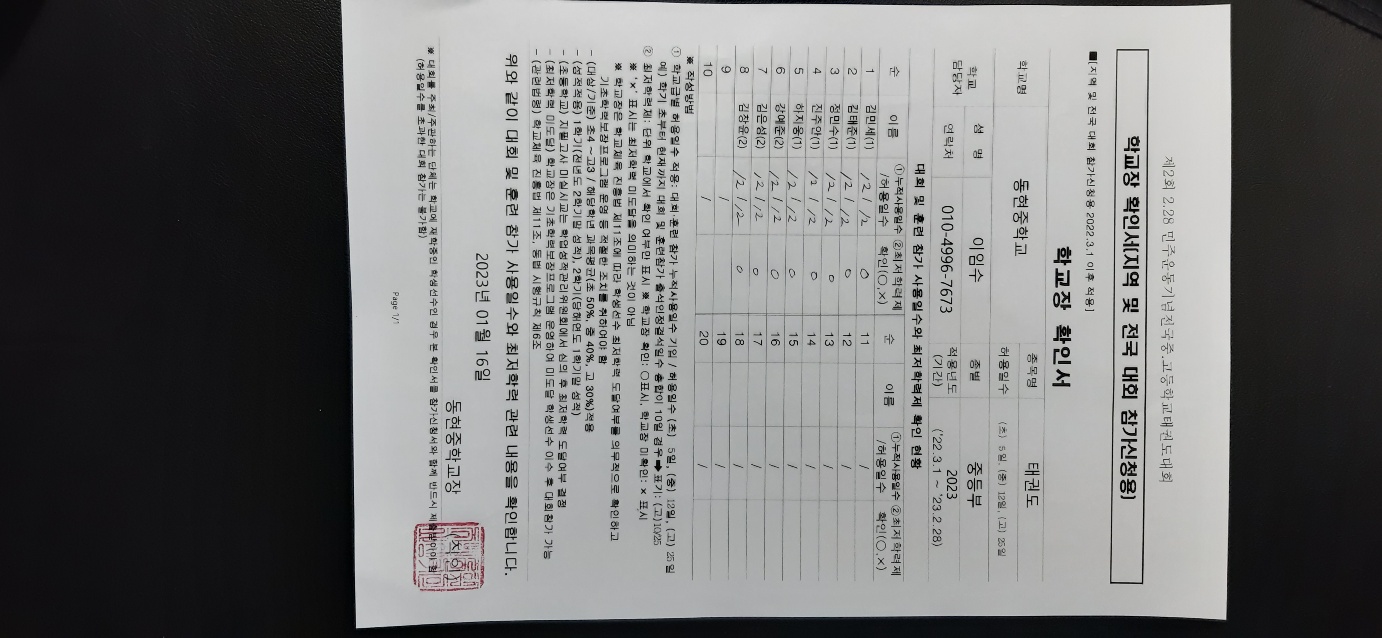 제2회 2.28 민주운동기념전국중.고등학교태권도대회
학교장 확인서(지역 및 전국 대회 참가신청용)
■[지역 및 전국 대회 참가신청용 2022.3.1 이후 적용]
학교장 확인서
학교명 동현중학교 종목명 태권도
허용일수 (초) 5일, (중) 12일, (고) 25일
학교 담당자 성 명 이임수 종별 중등부
연락처 010-4996-7673 적용년도 (기간) 2023 ('22.3.1 ~ '23.2.28)
대회 및 훈련 참가 사용일수와 최저학력제 확인 현황
순 이름 ①누적사용일수 /허용일수 ②최저학력제 확인(○,×) 순 이름 ①누적사용일수 /허용일수 ②최저학력제 확인(○,×)
1 김민세(1) /2 / /2 ○ 11 /
2 김태준(1) /2 / /2 ○ 12 /
3 정민수(1) /2 / /2 ○ 13 /
4 진주안(1) /2 / /2 ○ 14 /
5 하지웅(1) /2 / /2 ○ 15 /
6 강예준(2) /2 / /2 ○ 16 /
7 김은성(2) /2 / /2 ○ 17 /
8 김장윤(2) /2 / /2 ○ 18 /
9 / 19 /
10 / 20 /
※ 작성방법
① 학교급별 허용일수 적용: 대회·훈련 참가 누적사용일수 기입 / 허용일수 (초) 5일, (중) 12일, (고) 25일
예) 학기 초부터 현재까지 대회 및 훈련참가 출석인정결석일수 총합이 10일 경우 ➡ 표기: (고)10/25
② 최저학력제: 단위 학교에서 확인 여부만 표시 ※ 학교장 확인: ○표시, 학교장 미확인: × 표시
※ '×' 표시는 최저학력 미도달을 의미하는 것이 아님
※ 학교장은 학교체육 진흥법 제11조에 따라 학생선수 최저학력 도달여부를 의무적으로 확인하고
기초학력보장프로그램 운영 등 적절한 조치를 취하여야 함
- (대상/기준) 초4 ~ 고3 / 해당학년 교과목평균(초 50%, 중 40%, 고 30%)적용
- (성적적용) 1학기(전년도 2학기말 성적), 2학기(당해연도 1학기말 성적)
- (초등학교) 지필고사 미실시교는 학업성적관리위원회에서 심의 후 최저학력 도달여부 결정
- (최저학력 미도달) 학교장은 기초학력보장프로그램 운영하여 미도달 학생선수 이수 후 대회참가 가능
- (관련법령) 학교체육 진흥법 제11조, 동법 시행규칙 제6조
위와 같이 대회 및 훈련 참가 사용일수와 최저학력 관련 내용을 확인합니다.
2023년 01월 16일
동현중학교장 (직인)
※ 대회를 주최/주관하는 단체는 학교에 재학중인 학생선수인 경우 본 확인서를 참가신청서와 함께 반드시
(허용일수를 초과한 대회 참가는 불가함)
Page 1/1